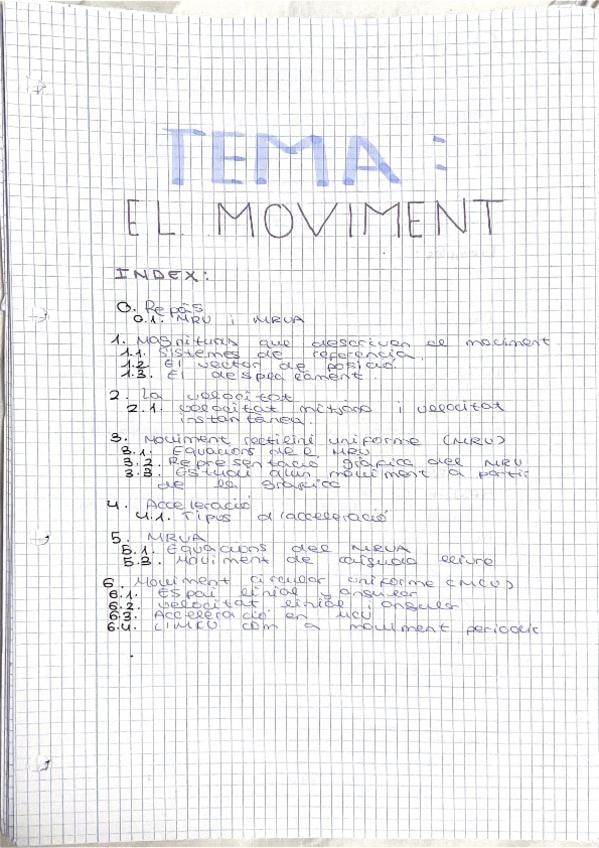 TEMA:
EL MOVIMENT
INDEX:
0. Repàs
0.1. MRU i MRUA
1. Magnituds que descriuen el moviment
1.1. Sistemes de referència.
1.2. El vector de posició
1.3. El desplaçament.
2. La velocitat
2.1. velocitat mitjana i velocitat
instantànea.
3. Moviment rectilini uniforme (MRU)
3.1. Equacions del MRU
3.2. Representació gràfica del MRU
3.3. Estudi d'un moviment a partir
de la gràfica
4. Acceleració
4.1. Tipus d'acceleració
5. MRUA
5.1. Equacions del MRUA
5.3. Moviment de caiguda lliure
6. Moviment circular uniforme (MCU)
6.1. Espai linial y angular
6.2. velocitat linial i angular
6.3. Acceleració en MCU
6.4. com a moviment periòdic